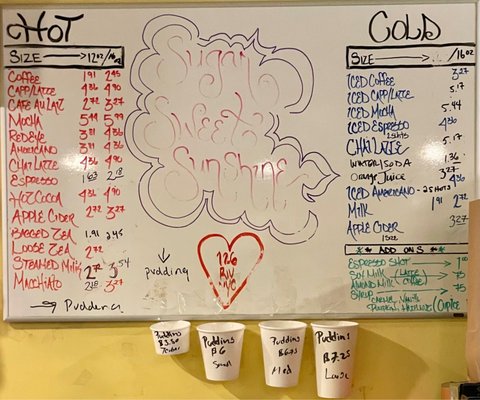 HOT
SIZE 12oz/16oz
COFFEE 1.91 2.45
CAPP/LATTE 4.36 4.90
CAFE AU LAIT 2.72 3.27
MOCHA 5.44 5.99
REDEYE 3.81 4.36
AMERICANO 3.81 4.36
CHAI LATTE 4.36 4.90
ESPRESSO 1.63 2.18
HOT COCOA 4.36 4.90
APPLE CIDER 2.72 3.27
BAGGED TEA 1.91 2.45
LOOSE TEA 2.72
STEAMED MILK 2.72 3.54
MACCHIATO 2.18 3.27
Sugar
Sweet
Sunshine
126
RIV
NYC
pudding
COLD
SIZE /16oz
ICED COFFEE 3.27
ICED CAPP/LATTE 5.17
ICED MOCHA 5.44
ICED ESPRESSO 4.36
2 SHOTS
CHAI LATTE 5.17
WATER/SODA 1.36
ORANGE JUICE 3.27
ICED AMERICANO - 2 SHOTS 4.36
MILK 1.91 2.72
APPLE CIDER 3.27
1 SIZE
** ADD ONS **
ESPRESSO SHOT 1.00
SOY MILK (LATTE/COFFEE) .75
ALMOND MILK .75
SYRUP
CARAMEL, VANILLA
PUMPKIN, HAZELNUT
Pudding
$3.50
Pudding
$6
Small
Pudding
$6.75
Med
Pudding
$7.25
Large